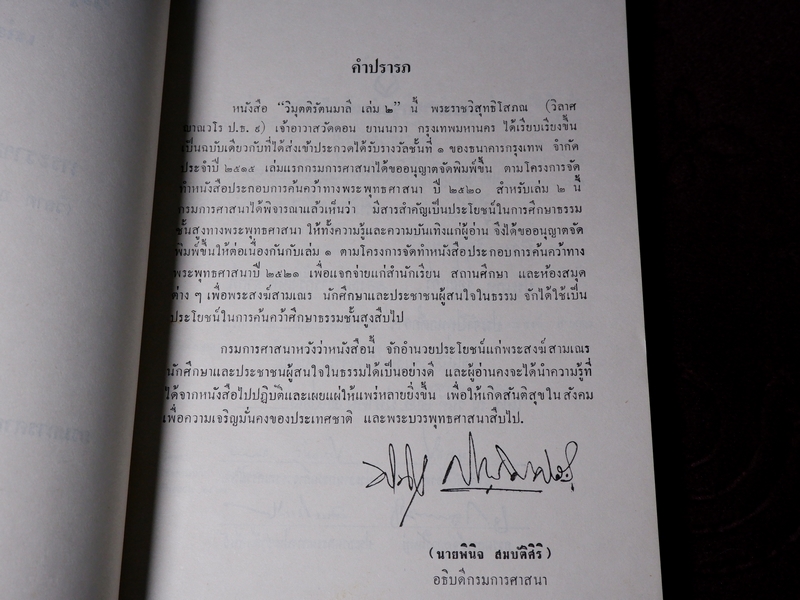 คำปรารภ
หนังสือ “วิมุตติรัตนมาลี เล่ม ๒” นี้ พระราชวิสุทธิโสภณ (วิลาศ
ญาณวโร ป.ธ. ๙) เจ้าอาวาสวัดดอน ยานนาวา กรุงเทพมหานคร ได้เรียบเรียงขึ้น
เป็นฉบับเดียวกับที่ได้ส่งเข้าประกวดได้รับรางวัลชั้นที่ ๑ ของธนาคารกรุงเทพ จำกัด
ประจำปี ๒๕๑๕ เล่มแรกกรมการศาสนาได้ขออนุญาตจัดพิมพ์ขึ้น ตามโครงการจัด
ทำหนังสือประกอบการค้นคว้าทางพระพุทธศาสนา ปี ๒๕๒๐ สำหรับเล่ม ๒ นี้
กรมการศาสนาได้พิจารณาแล้วเห็นว่า มีสารสำคัญเป็นประโยชน์ในการศึกษาธรรม
ชั้นสูงทางพระพุทธศาสนา ให้ทั้งความรู้และความบันเทิงแก่ผู้อ่าน จึงได้ขออนุญาตจัด
พิมพ์ขึ้นให้ต่อเนื่องกันกับเล่ม ๑ ตามโครงการจัดทำหนังสือประกอบการค้นคว้าทาง
พระพุทธศาสนาปี ๒๕๒๑ เพื่อแจกจ่ายแก่สำนักเรียน สถานศึกษา และห้องสมุด
ต่าง ๆ เพื่อพระสงฆ์สามเณร นักศึกษาและประชาชนผู้สนใจในธรรม จักได้ใช้เป็น
ประโยชน์ในการค้นคว้าศึกษาธรรมชั้นสูงสืบไป
กรมการศาสนาหวังว่าหนังสือนี้ จักอำนวยประโยชน์แก่พระสงฆ์สามเณร
นักศึกษาและประชาชนผู้สนใจในธรรมได้เป็นอย่างดี และผู้อ่านคงจะได้นำความรู้ที่
ได้จากหนังสือไปปฏิบัติและเผยแผ่ให้แพร่หลายยิ่งขึ้น เพื่อให้เกิดสันติสุขใน สังคม
เพื่อความเจริญมั่นคงของประเทศชาติ และพระบวรพุทธศาสนาสืบไป.
(นายพินิจ สมบัติศิริ)
อธิบดีกรมการศาสนา